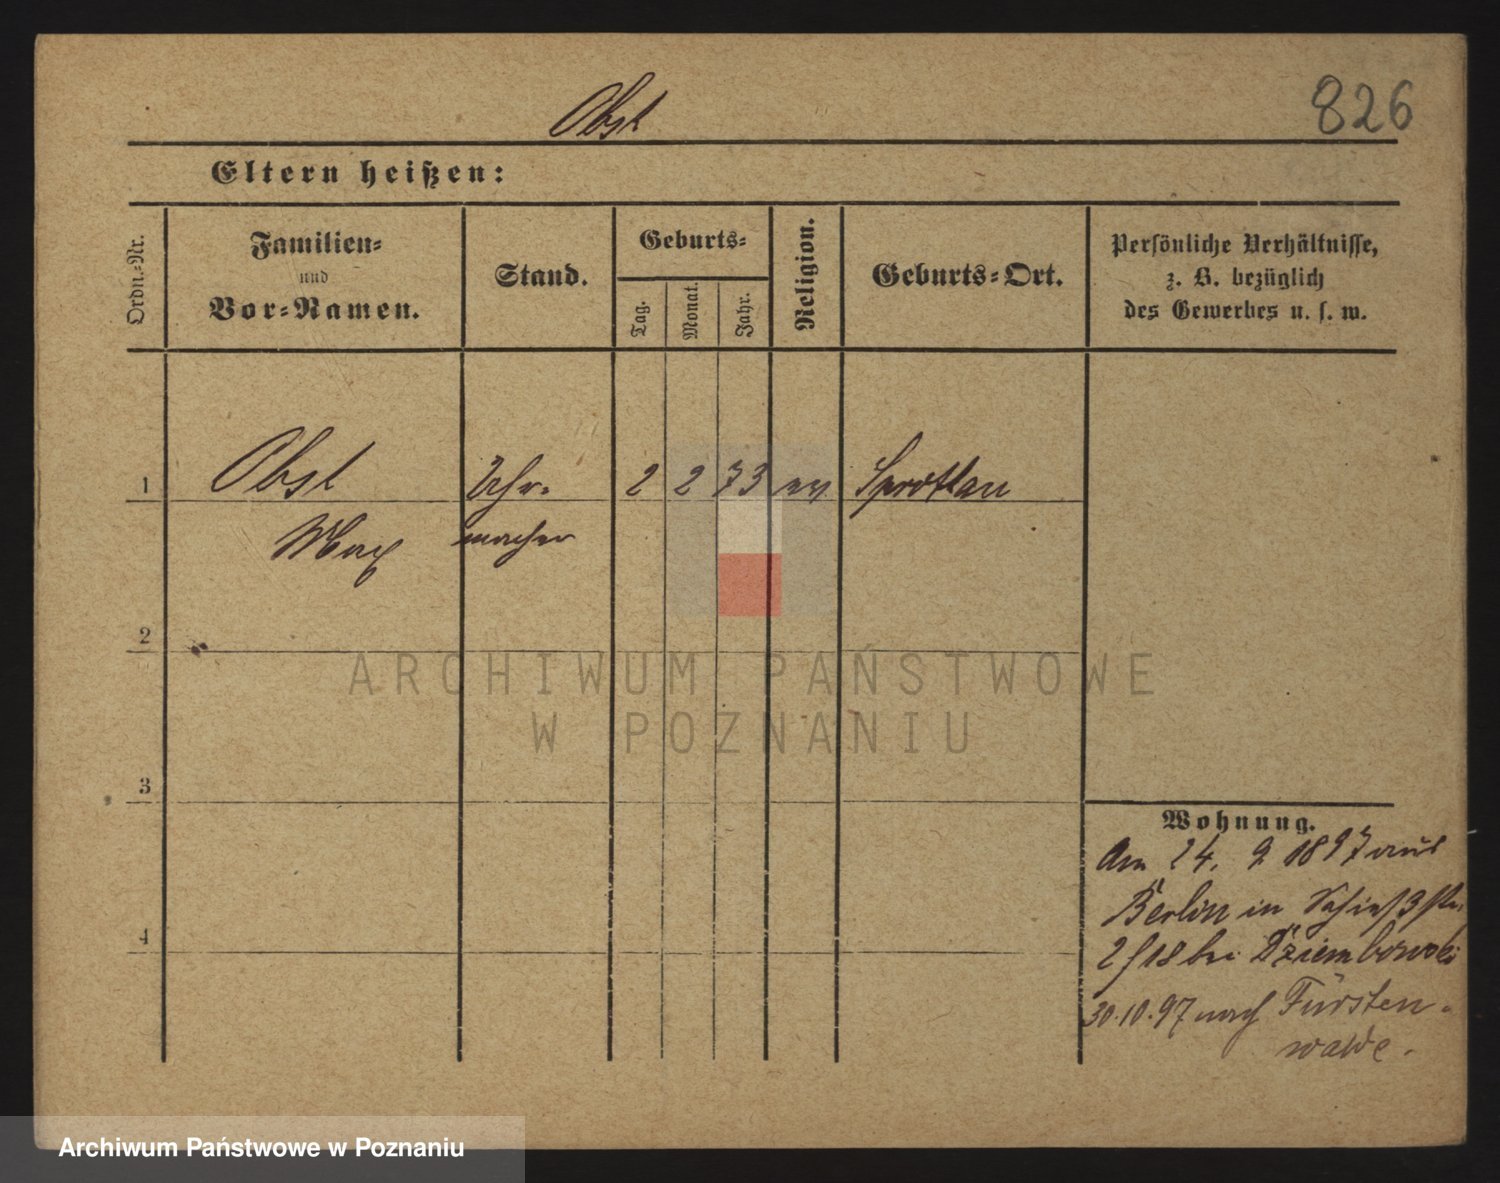 Obst
826
Eltern heißen:
Ordn.-Nr.
Familien-
und
Vor-Namen.
Stand.
Geburts-
Tag.
Monat.
Jahr.
Religion.
Geburts-Ort.
Persönliche Verhältnisse,
z. B. bezüglich
des Gewerbes u. s. w.
1 Obst Uhr- 2 2 73 ev Sprottau
Max macher
2
3
4
Wohnung.
Am 24. 9 1897 aus
Berlin in Schießstr.
2/18 bei Dziembowski
30.10.97 nach Fürsten-
walde.
ARCHIWUM PAŃSTWOWE
W POZNANIU
Archiwum Państwowe w Poznaniu